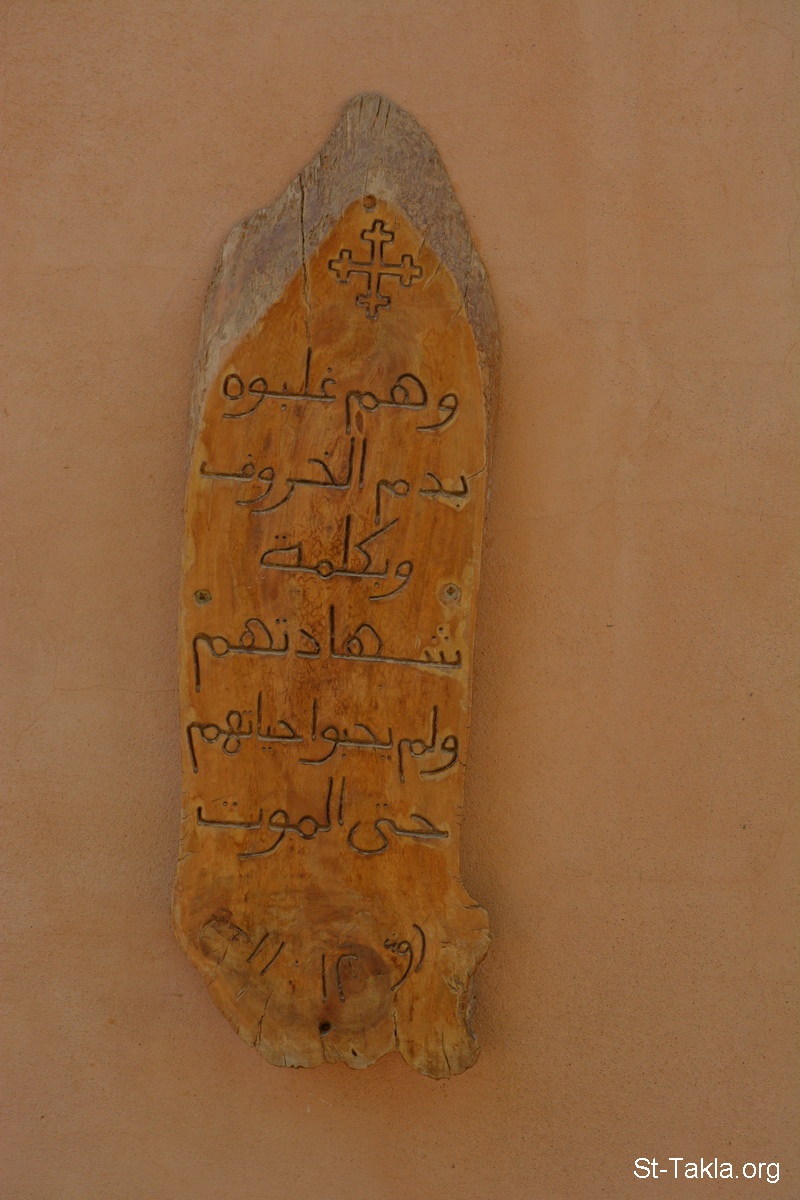 وهم غلبوه
بدم الخروف
وبكلمة
شهادتهم
ولم يحبوا حياتهم
حتى الموت
(رؤ ١٢: ١١)
St-Takla.org